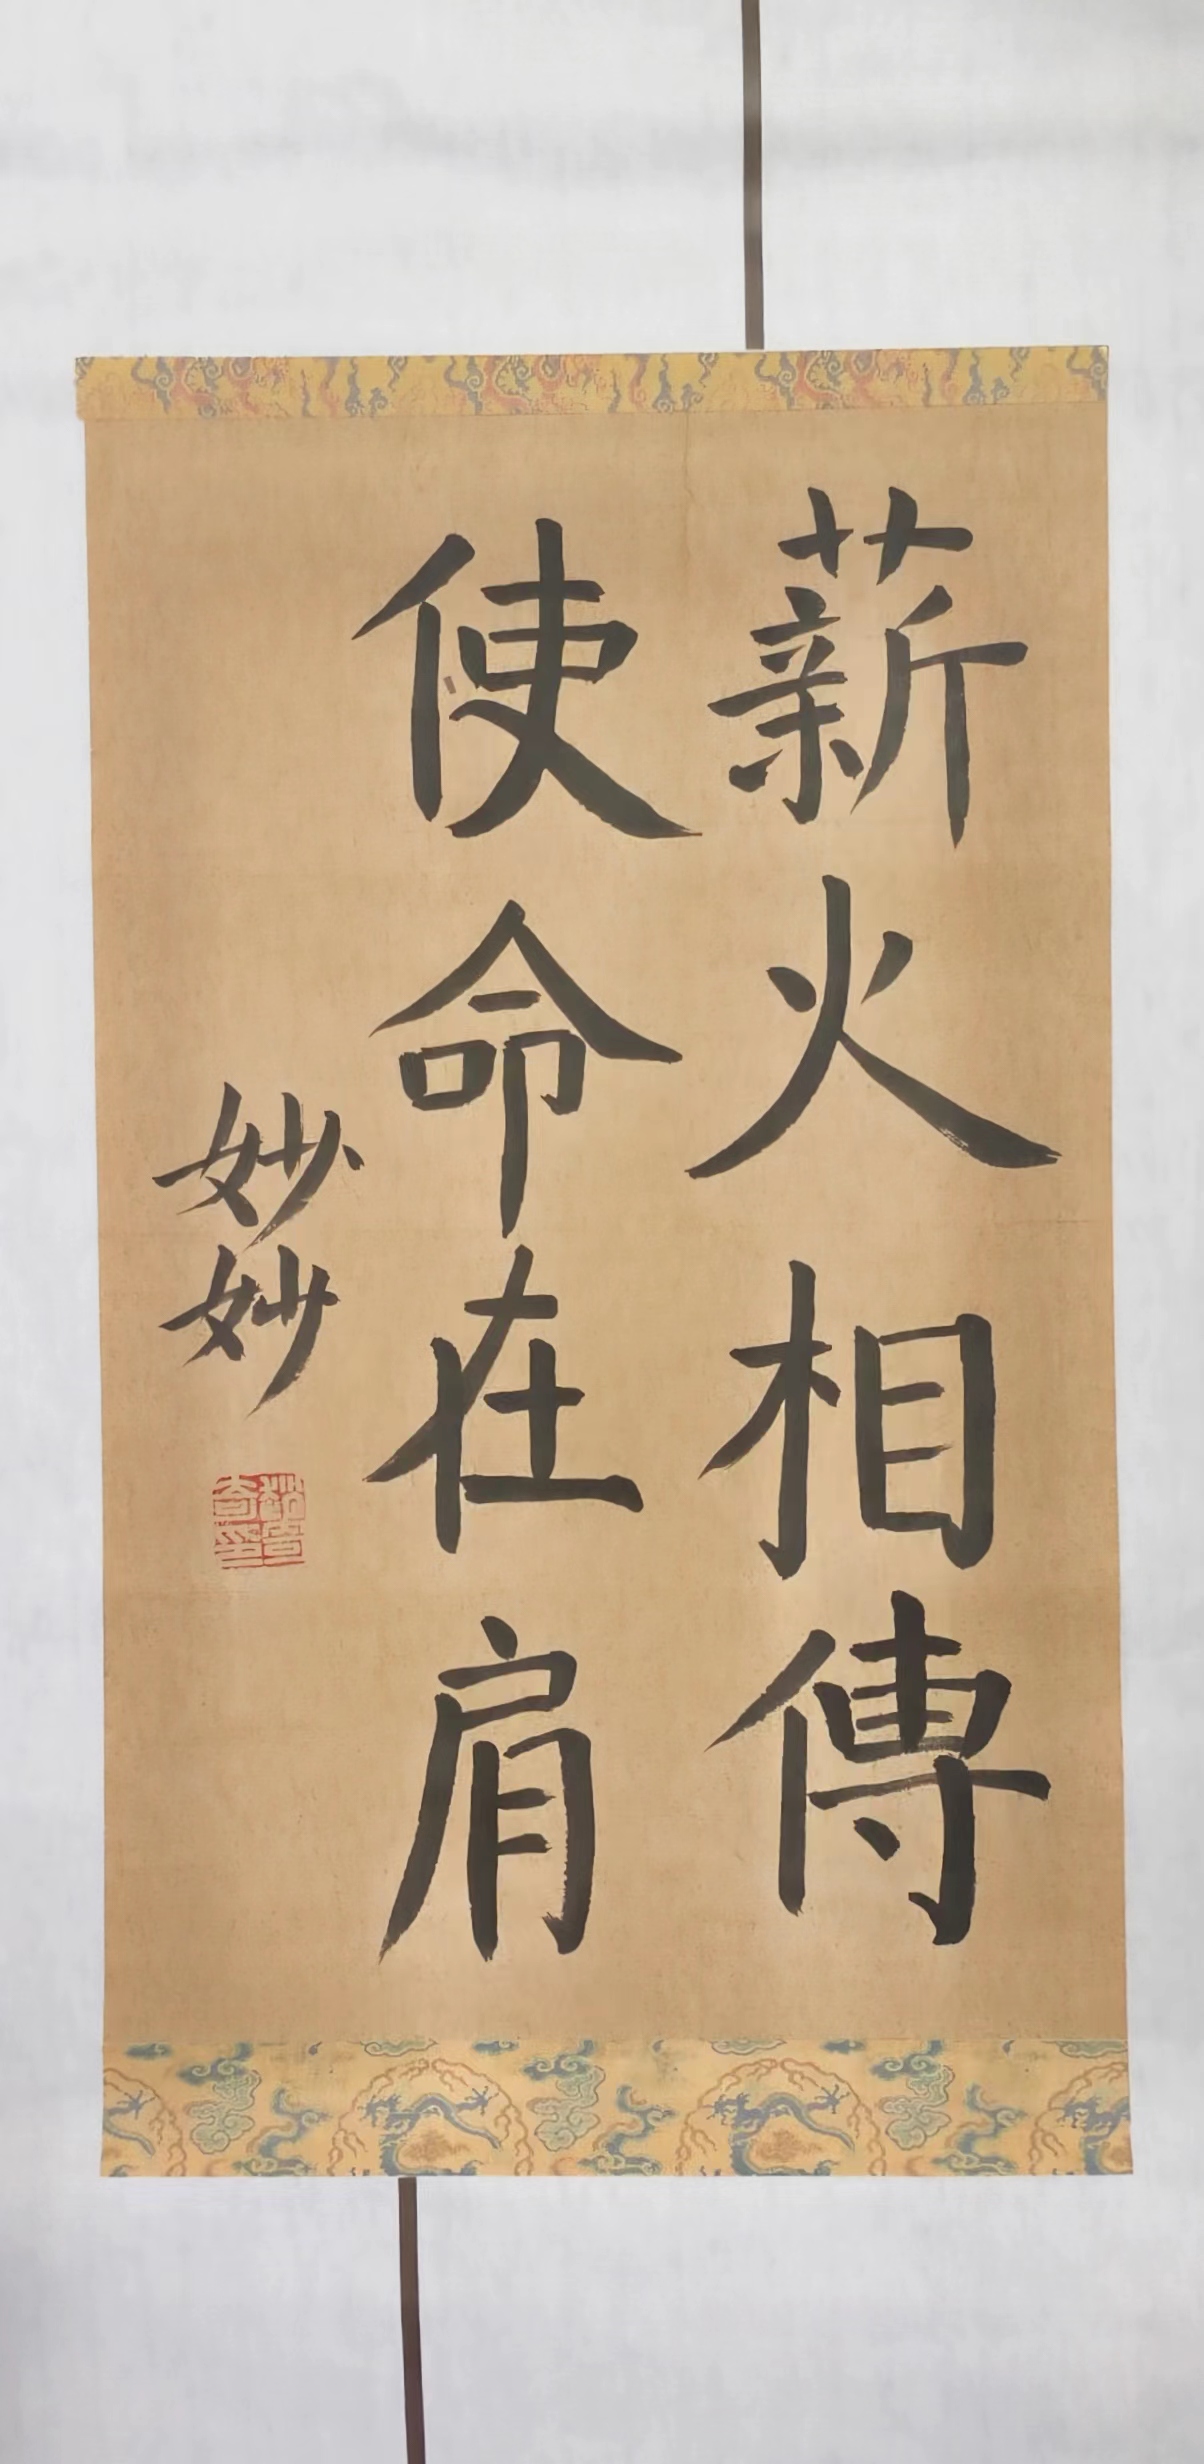 薪火相傳
使命在肩
妙妙